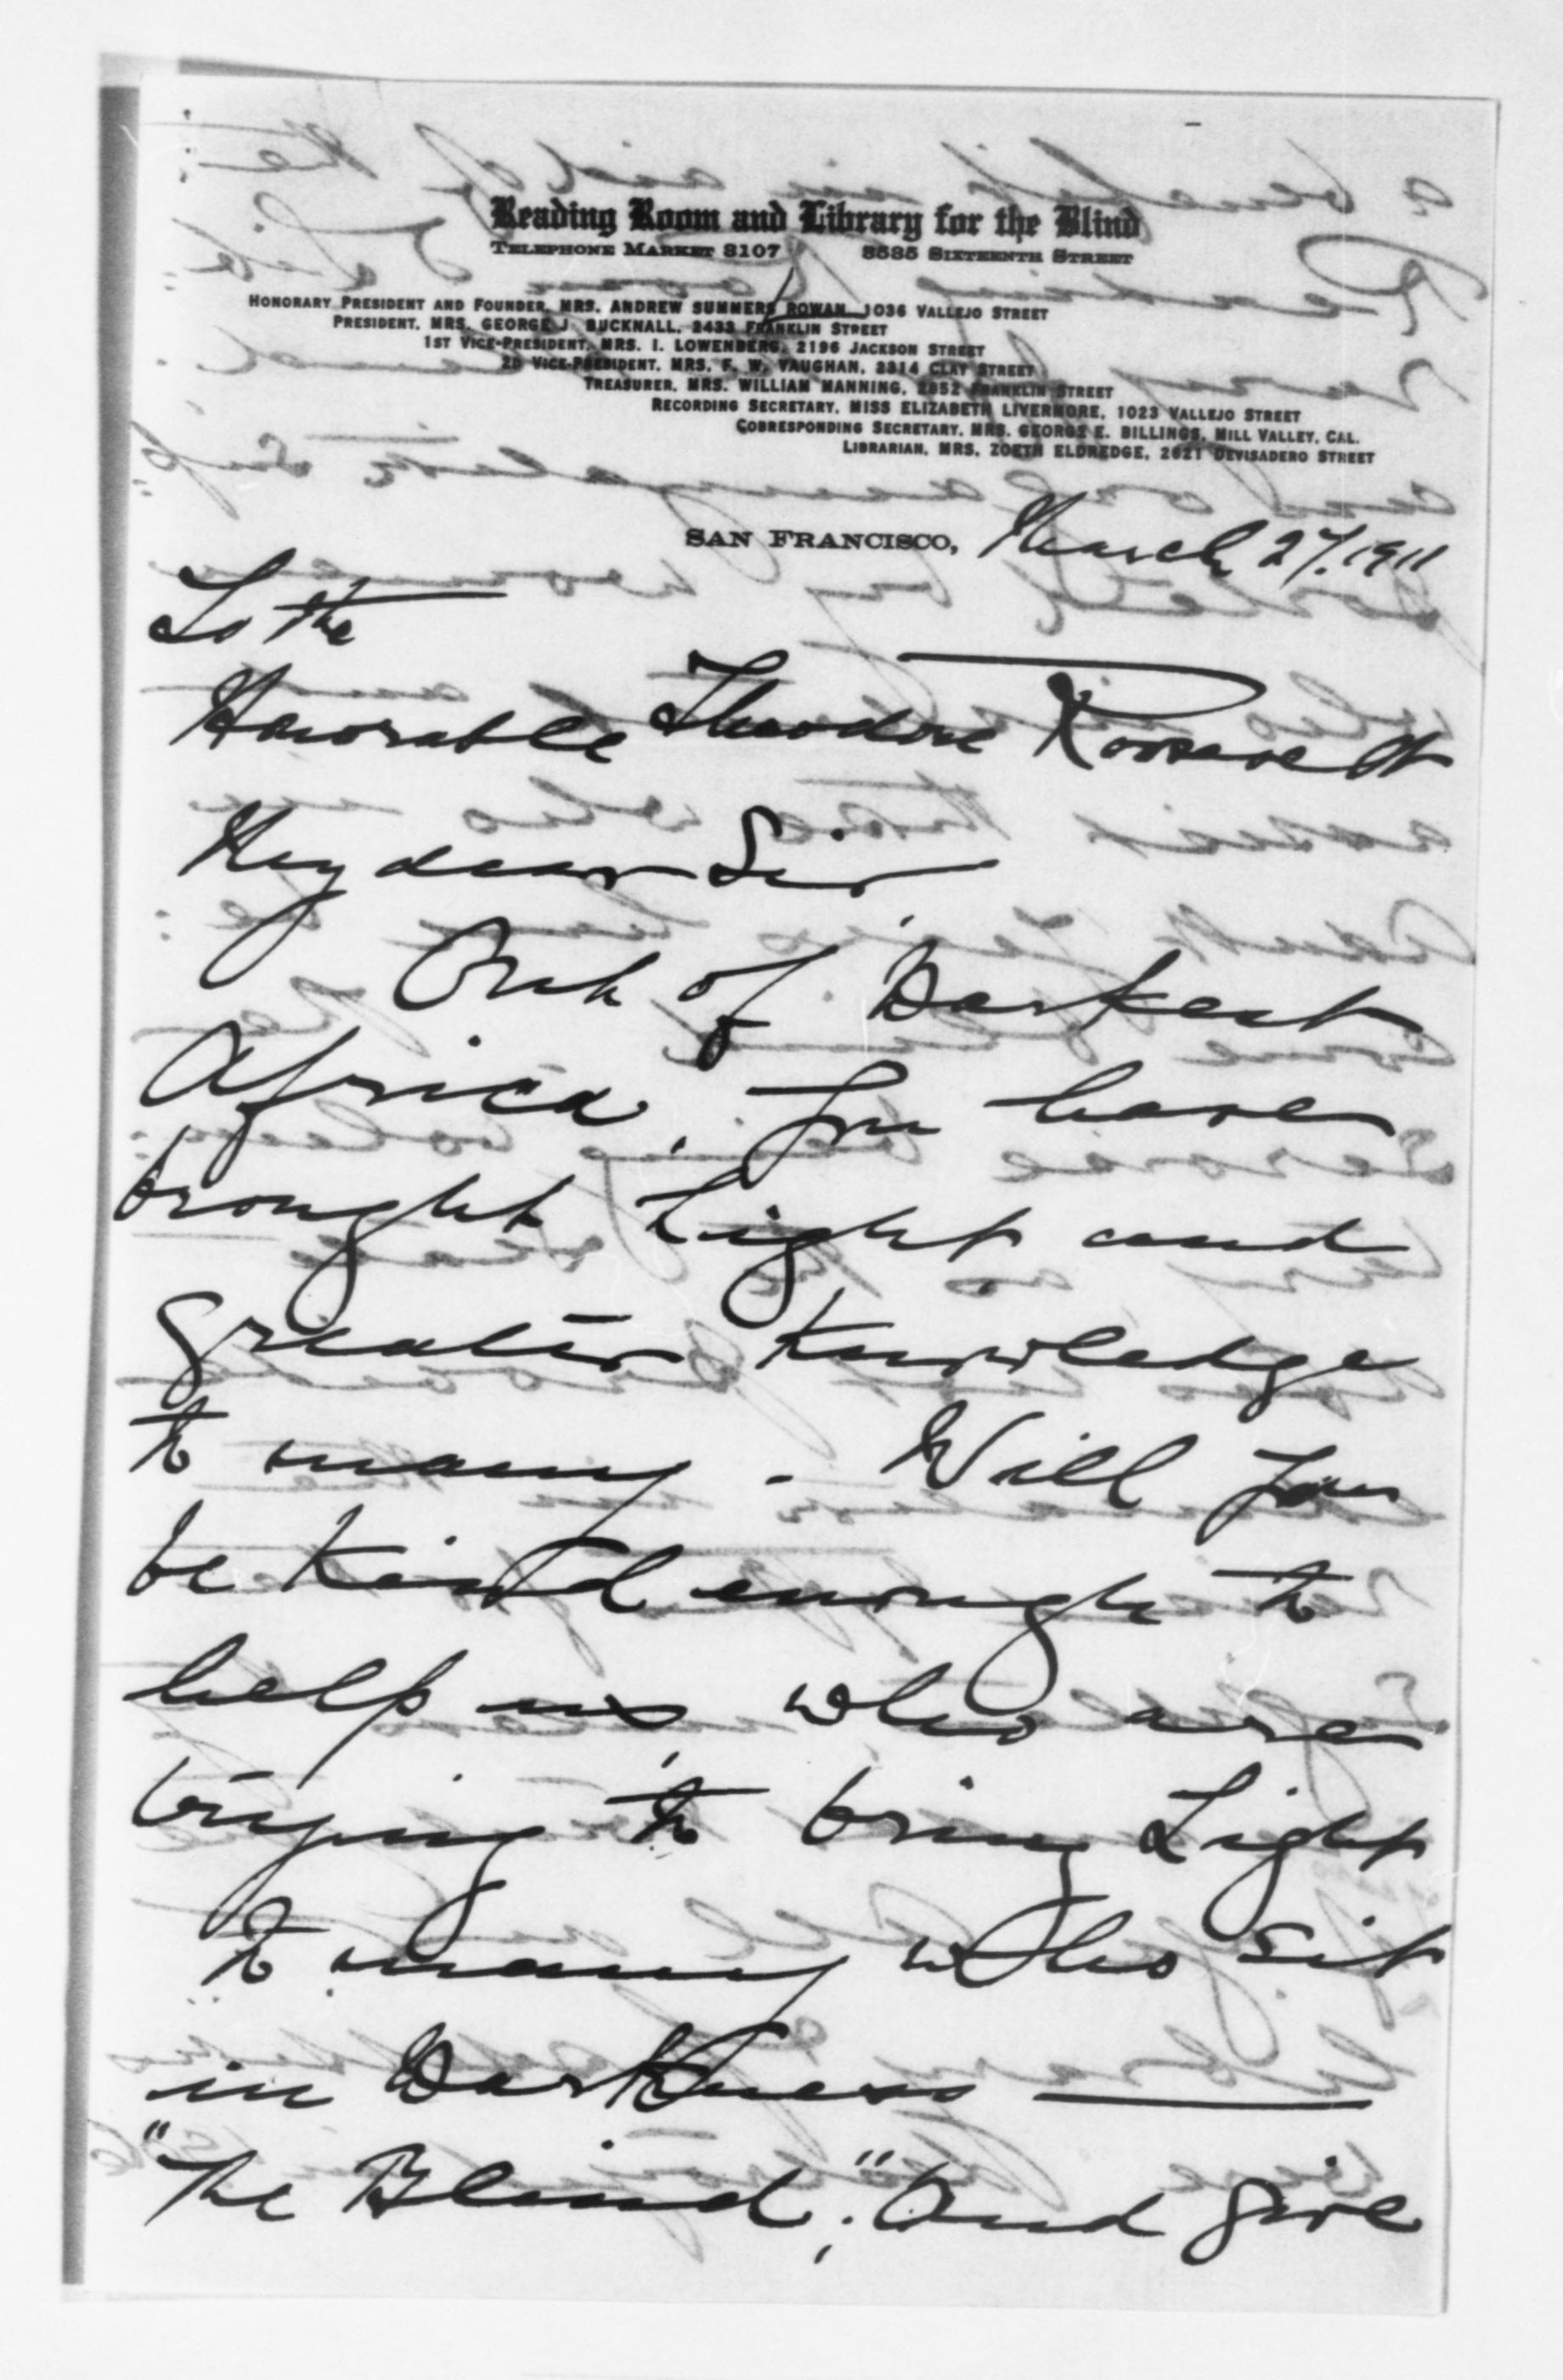 Reading Room and Library for the Blind
Telephone Market 3107 3535 Sixteenth Street
Honorary President and Founder, Mrs. Andrew Summers Rowan, 1036 Vallejo Street
President, Mrs. George J. Bucknall, 2433 Franklin Street
1st Vice-President, Mrs. I. Lowenberg, 2196 Jackson Street
2d Vice-President, Mrs. F. W. Vaughan, 2314 Clay Street
Treasurer, Mrs. William Manning, 2852 Franklin Street
Recording Secretary, Miss Elizabeth Livermore, 1023 Vallejo Street
Corresponding Secretary, Mrs. George E. Billings, Mill Valley, Cal.
Librarian, Mrs. Zoeth Eldredge, 2621 Devisadero Street
San Francisco, March 27, 1911
To the
Honorable Theodore Roosevelt
My dear Sir,
Out of Darkest
Africa, you have
brought Light and
greater Knowledge
to many - Will you
be Kind enough to
help us, who are
trying to bring Light
to many who sit
in Darkness —
"The Blind"; And give